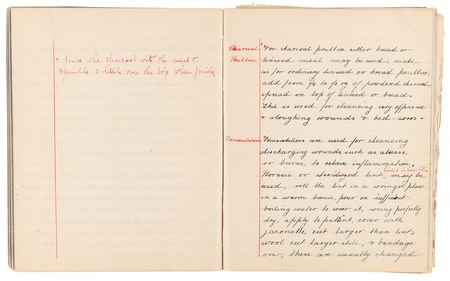 + Raise the charcoal into the meal +
sprinkle a little over the top when finished
Charcoal
Poultice
For charcoal poultice either bread or
linseed meal may be used, make
as for ordinary linseed or bread poultice,
add from ¼ to ½ oz of powdered charcoal,
spread on top of linseed or bread.
This is used for cleansing very offensive
+ sloughing wounds + bed-sores.
Fomentations
Fomentations are used for cleansing
discharging wounds such as abscess,
or burns, to relieve inflammation.
Boracic or sterilized lint may be
used, roll the lint in a wringer, place
in a warm basin, pour on sufficient
boiling water to cover it, wring perfectly
dry, apply to patient, cover with
jaconette, cut larger than lint,
wool cut larger still, + bandage
on, these are usually changed